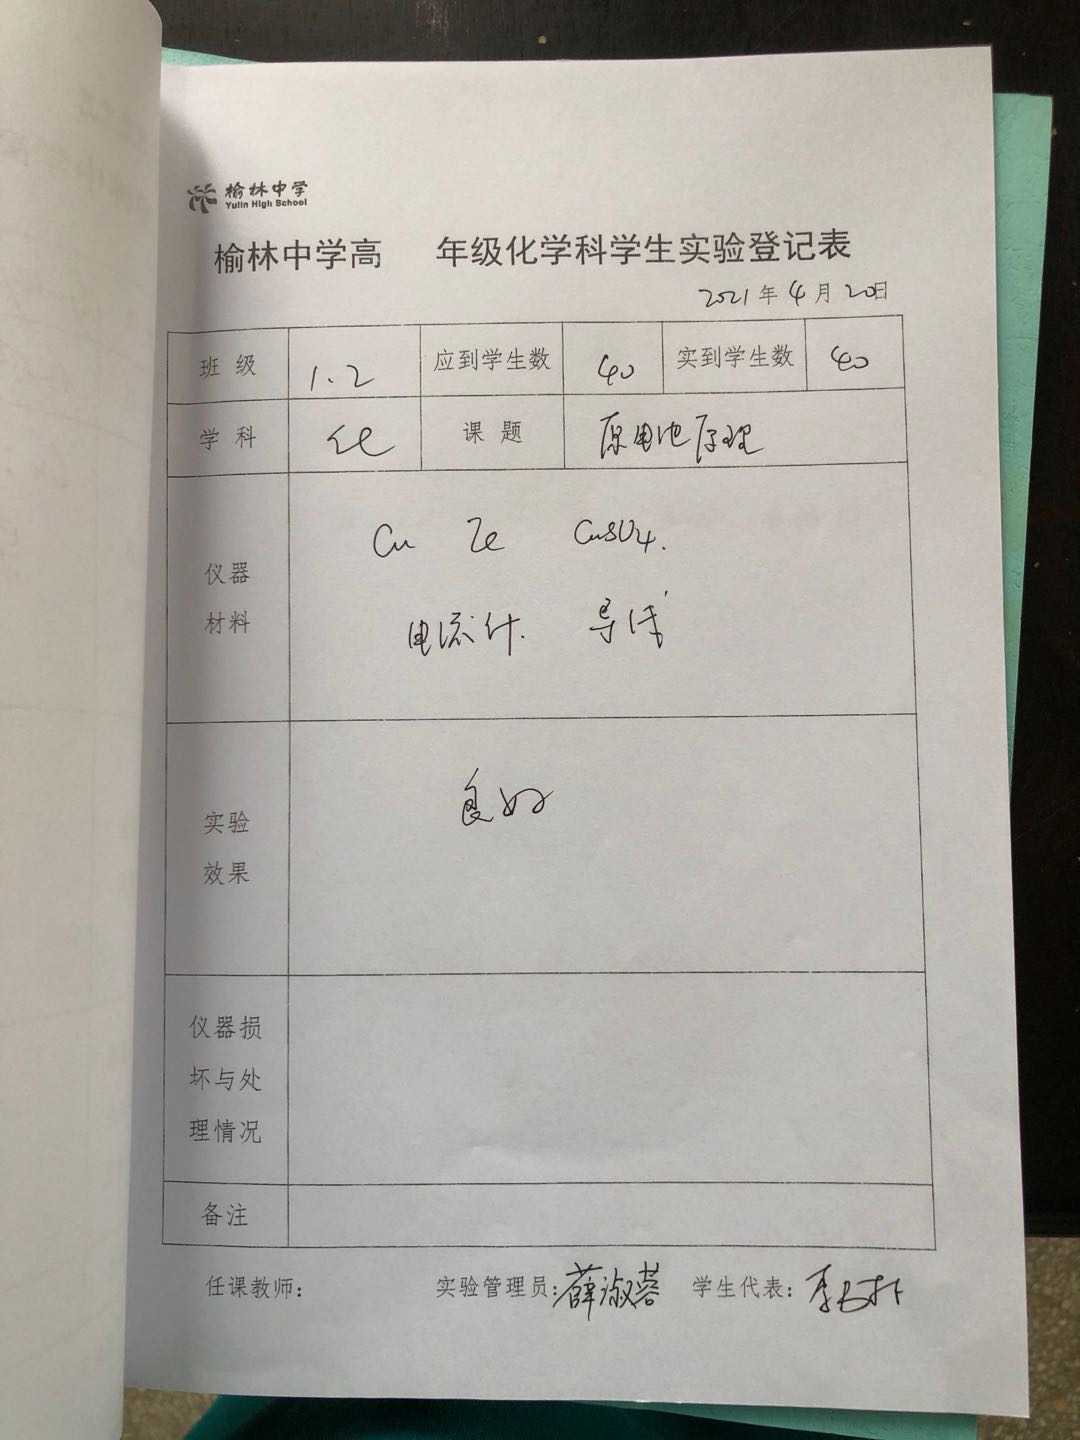 榆林中学
Yulin High School
榆林中学高 年级化学科学生实验登记表
2021年4月20日
班 级 1.2 应到学生数 40 实到学生数 40
学 科 化 课 题 原电池原理
仪器
材料
Cu Ze CuSO4.
电流计. 导线
实验
效果
良好
仪器损
坏与处
理情况
备注
任课教师： 实验管理员：薛淑蓉 学生代表：李